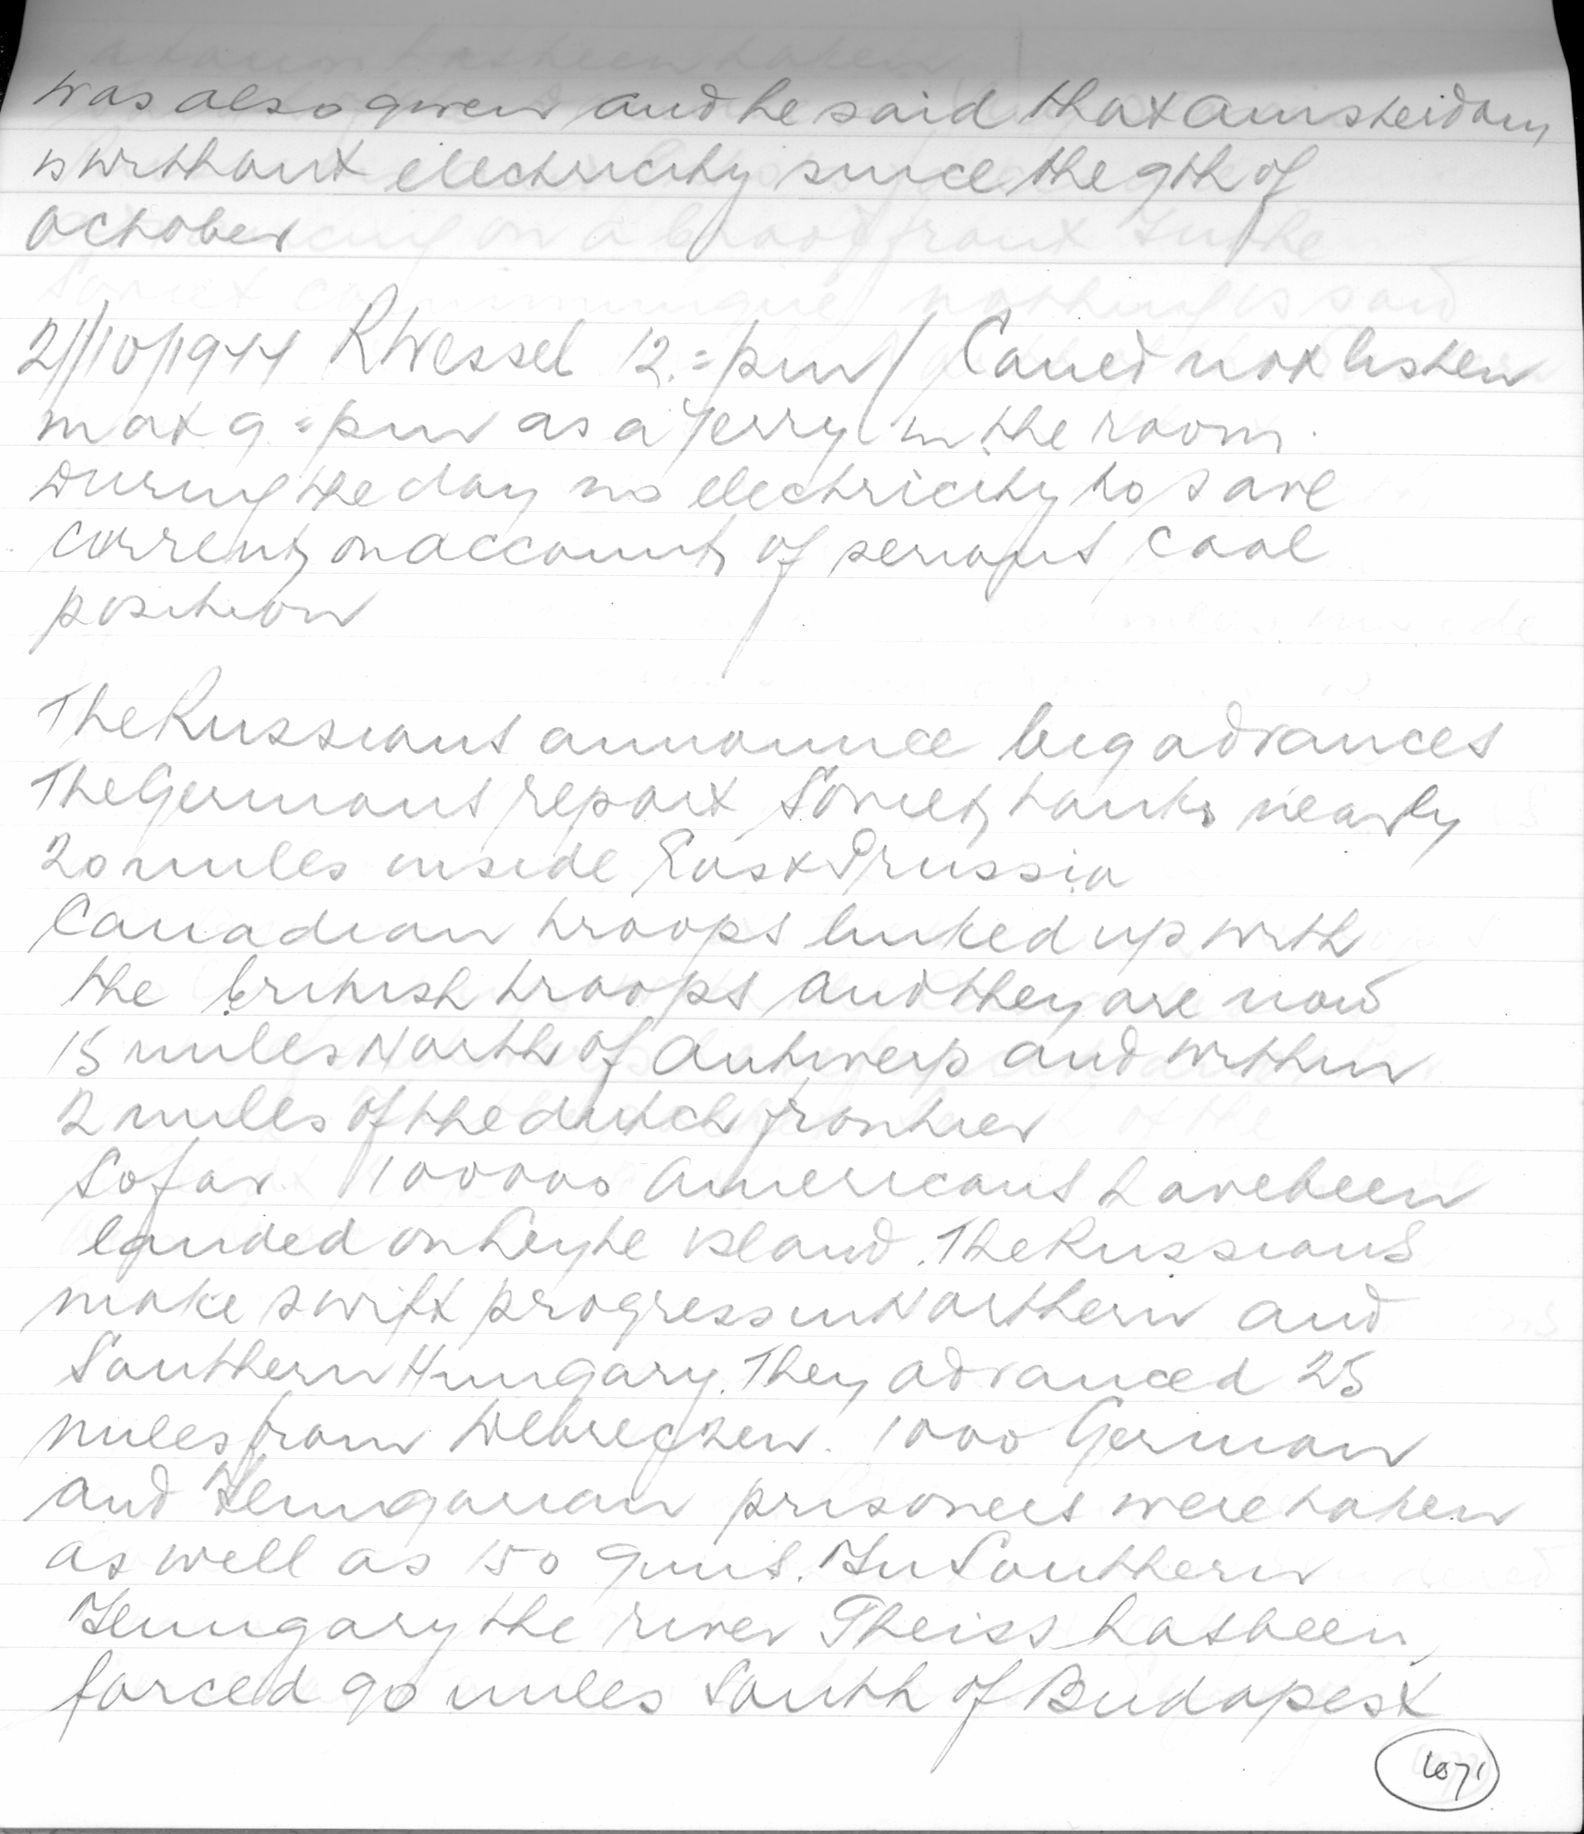 was also given and he said that Amsterdam
is without electricity since the 9th of
October
21/10/1944 RWessel 12.=pm / Could not listen
in at 9 = pm as a Jerry in the room.
During the day no electricity to save
current on account of serious coal
position
The Russians announce big advances
The Germans report Soviet tanks nearly
20 miles inside East Prussia
Canadian troops linked up with
the british troops and they are now
15 miles North of Antwerp and within
2 miles of the dutch frontier
Sofar 100000 Americans have been
landed on Leyte island. The Russians
make swift progress in Northern and
Southern Hungary. They advanced 25
miles from Debreczen. 1000 German
and Hungarian prisoners were taken
as well as 150 guns. In Southern
Hungary the river Theiss has been
forced 90 miles South of Budapest